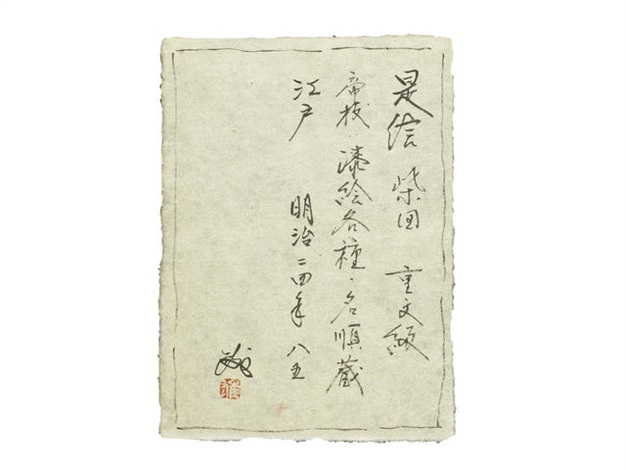 是信 柴田 重文級
帝技‥漆絵各種・名順蔵
江戸 明治二四年 八五